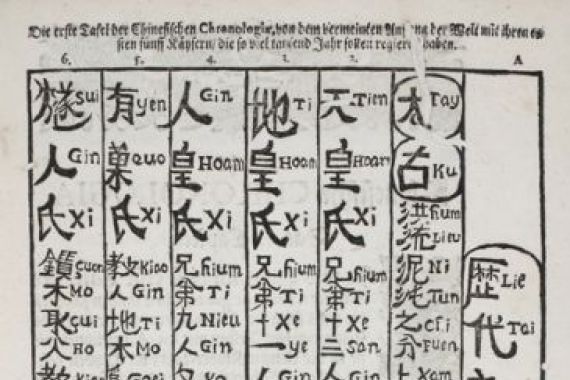 Die erste Tafel der Chinesischen Chronologiæ, von dem vermeinten der Welt mit ihren er-
sten fünff Käysern, die so viel tausend Jahr sollen regiert haben.
6. 5. 4. 3. 2. A
燧 Sui 有 yen 人 Gin 地 Ti 天 Tien 太 Tay
人 Gin 菓 Quo 皇 Hoam 皇 Hoam 皇 Hoam 古 Ku
氏 Xi 氏 Xi 氏 Xi 氏 Xi 氏 Xi 洪 hum
流 Lieu
鑽 çuon 教 Kiao 兄 hium 兄 hium 兄 hium 泥 Ni
木 Mo 人 Gin 弟 Ti 弟 Ti 弟 Ti 沌 Tun 歷 Lie
取 çui 地 Ti 九 Nieu 十 Xe 十 Xe 之 chi
火 Ho 木 Mo 人 Gin 一 ye 三 san 分 Fuen 代 Tai
教 人 Gin 人 Gin 上 Xam